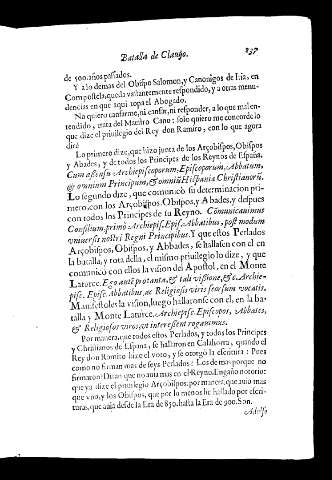 Batalla de Clauijo. 237
de 500.años passados.
Y a lo demas del Obispo Salomon, y Canonigos de Iria, en
Compostela, queda bastantemente respondido, y a otras menu-
dencias en que aqui topa el Abogado.
No quiero cansarme, ni cansar, ni responder, a lo que mal en-
tendido, trata del Maestro Cano: solo quiero me concorde lo
que dize el priuilegio del Rey don Ramiro, con lo que agora
diré
Lo primero dize, que hizo junta de los Arçobispos, Obispos
y Abades, y de todos los Principes de los Reynos de España.
Cum assensu Archiepiscoporum, Episcoporum, Abbatum,
& omnium Principum, & omniũ Hispania Christianorũ.
Lo segundo dize, que comunicò su determinacion pri-
mero, con los Arçobispos, Obispos, y Abades, y despues
con todos los Principes de su Reyno. Cõmunicauimus
Consilium, primò Archiepisc. Epise. Abbatibus, post modum
vniuersis nostri Regni Principibus. Y que estos Perlados
Arçobispos, Obispos, y Abbades, se hallaron con el en
la batalla, y rota della, el mismo priuilegio lo dize, y que
comunicò con ellos la vision del Apostol, en el Monte
Laturce. Ego autẽ protanta, & tali visione, &c. Archie-
pisc. Episc. Abbatibus, ac Religiosis viris seorsum vocatis.
Manifestoles la vision, luego hallaronse con el, en la ba-
talla y Monte Laturce. Archiepisc. Episcopos, Abbates,
& Religiosos viros, vt interessent rogauimus.
Por manera, que todos estos Perlados, y todos los Principes
y Christianos de España, se hallaron en Calahorra, quando el
Rey don Ramiro hizo el voto, y se otorgò la escritura: Pues
como no firman mas de seys Perlados: Los demas porque no
firmaron? Diràn que no auia mas en el Reyno. Engaño notorio:
que ya dize el priuilegio Arçobispos, por manera, que auia mas
que vno, y los Obispos, que por lo menos he hallado por escri-
turas, que auia desde la Era de 850. hasta la Era de 900. Son.
Adolfo